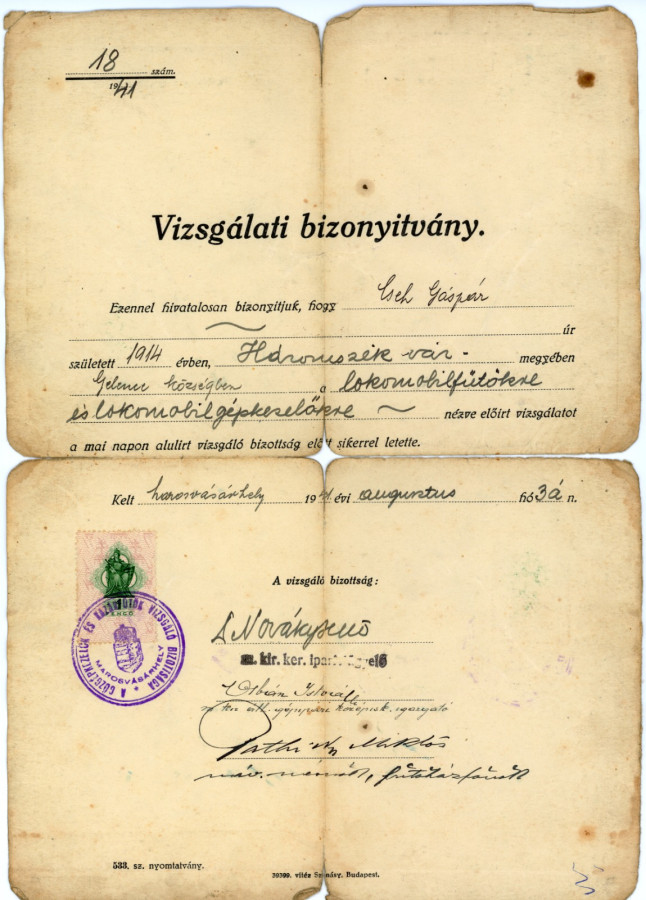 18 szám.
1941
Vizsgálati bizonyitvány.
Ezennel hivatalosan bizonyitjuk, hogy Cseh Gáspár
úr
született 1914 évben, Háromszék vár- megyében
Gelence községben a lokomobilfűtőkre
és lokomobilgépkezelőkre nézve előirt vizsgálatot
a mai napon alulirt vizsgáló bizottság előtt sikerrel letette.
Kelt Marosvásárhely 1941 évi augusztus hó 3á n.
A vizsgáló bizottság:
A GŐZGÉPKEZELŐK ÉS KAZÁNFŰTŐK VIZSGÁLÓ BIZOTTSÁGA
MAROSVÁSÁRHELY
Nováky
m. kir. ker. iparfelügyelő
István
középisk. igazgató
Miklós
máv. mérnök, fűtőházfőnök
533. sz. nyomtatvány.
39399. vitéz Budapest.